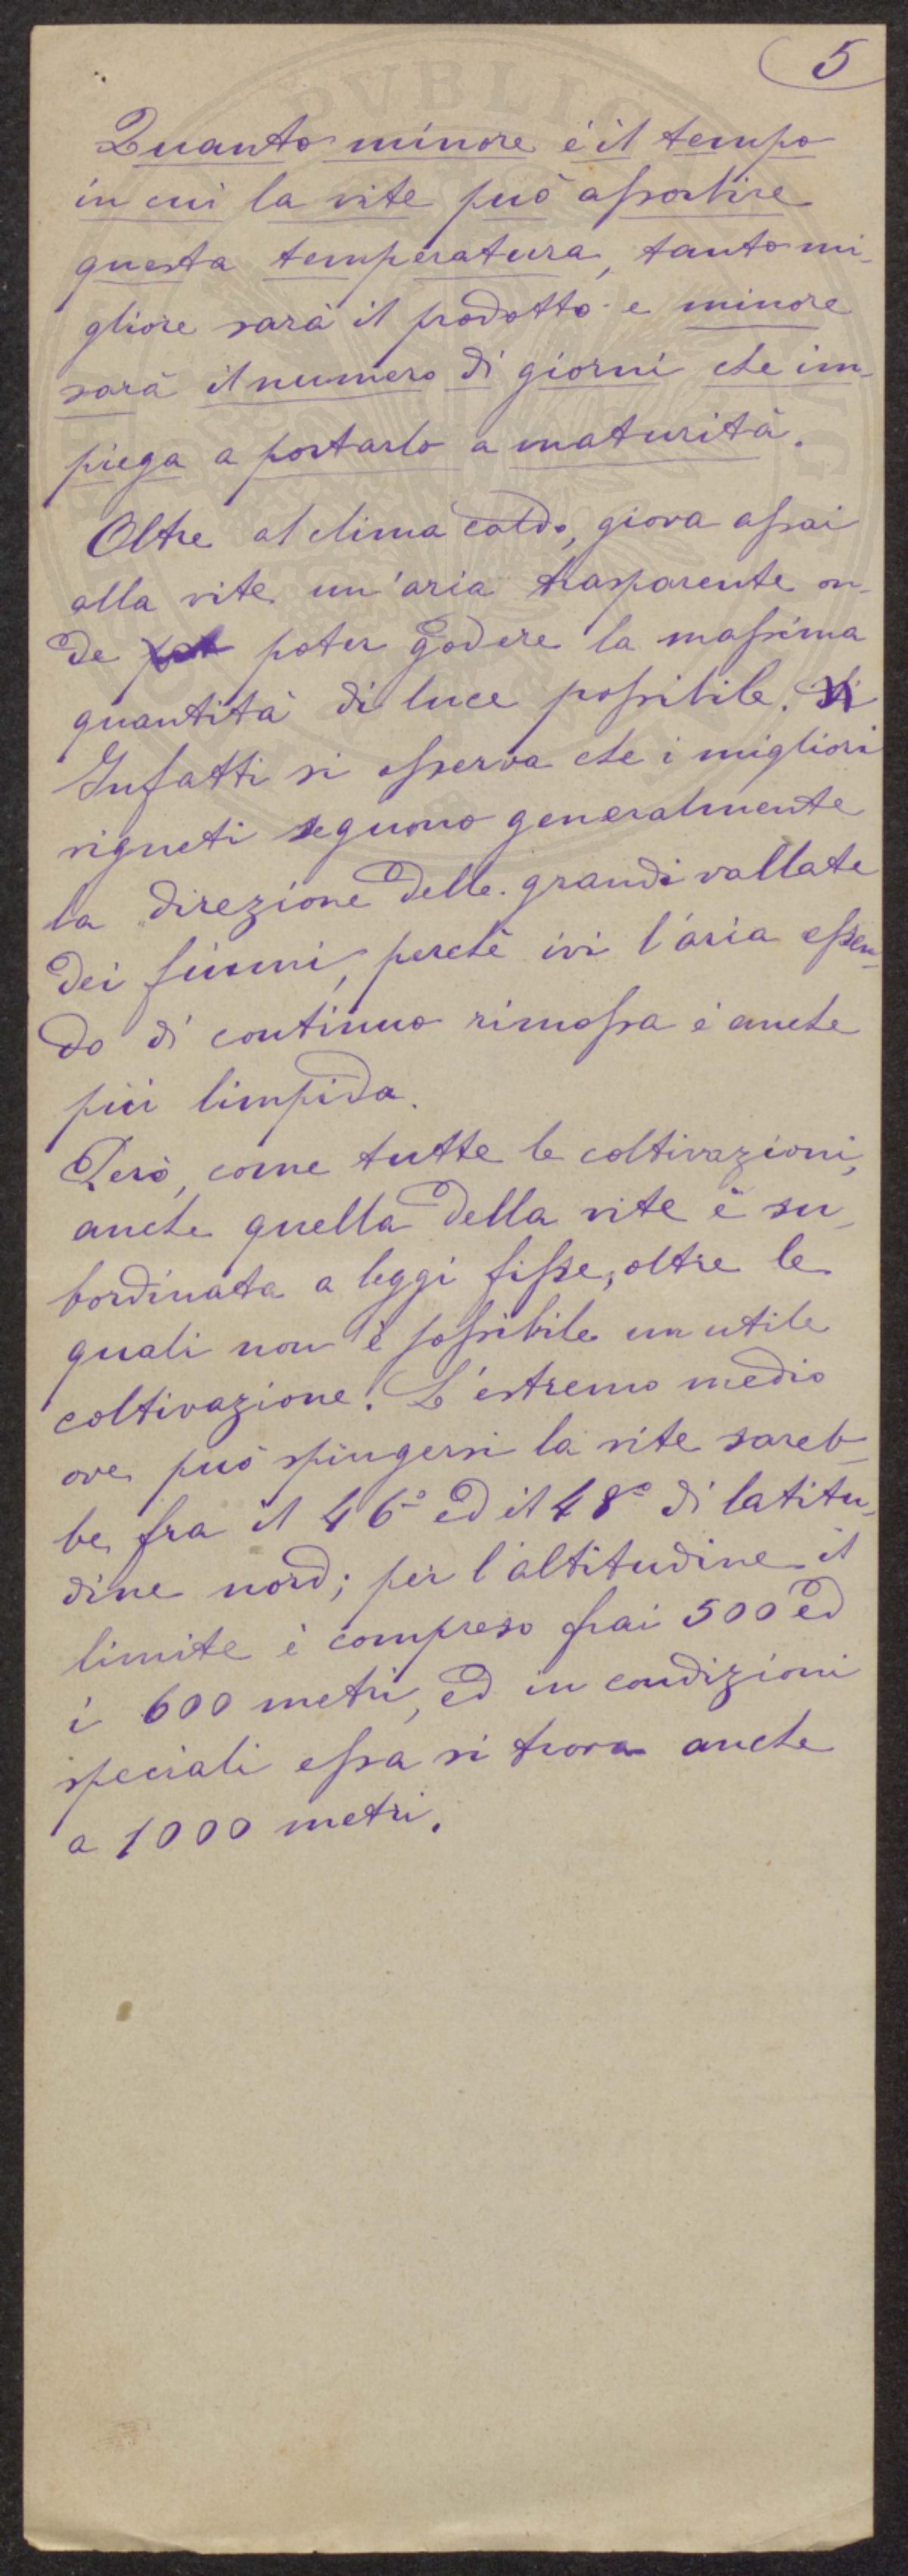 5
Quanto minore è il tempo
in cui la vite può assorbire
questa temperatura, tanto mi-
gliore sarà il prodotto e minore
sarà il numero di giorni che im-
piega a portarlo a maturità.
Oltre al clima caldo, giova assai
alla vite un'aria trasparente on-
de poter godere la massima
quantità di luce possibile.
Infatti si osserva che i migliori
vigneti seguono generalmente
la direzione delle grandi vallate
dei fiumi, perchè ivi l'aria essen-
do di continuo rimossa è anche
più limpida.
Però, come tutte le coltivazioni,
anche quella della vite è su-
bordinata a leggi fisse, oltre le
quali non è possibile un utile
coltivazione. L'estremo medio
ove può spingersi la vite sareb-
be fra il 46° ed il 48° di latitu-
dine nord; per l'altitudine il
limite è compreso fra i 500 ed
i 600 metri, ed in condizioni
speciali essa si trova anche
a 1000 metri.